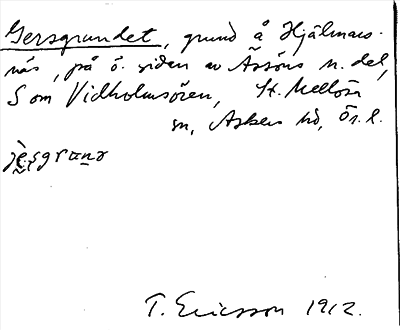 Gersgrundet, grund å Hjälmars-
näs, på ö. sidan av Åsöns n. del,
S om Vidholmsören, St. Mellösa
sn, Askers hd, Ör. l.
T. Ericsson 1912.